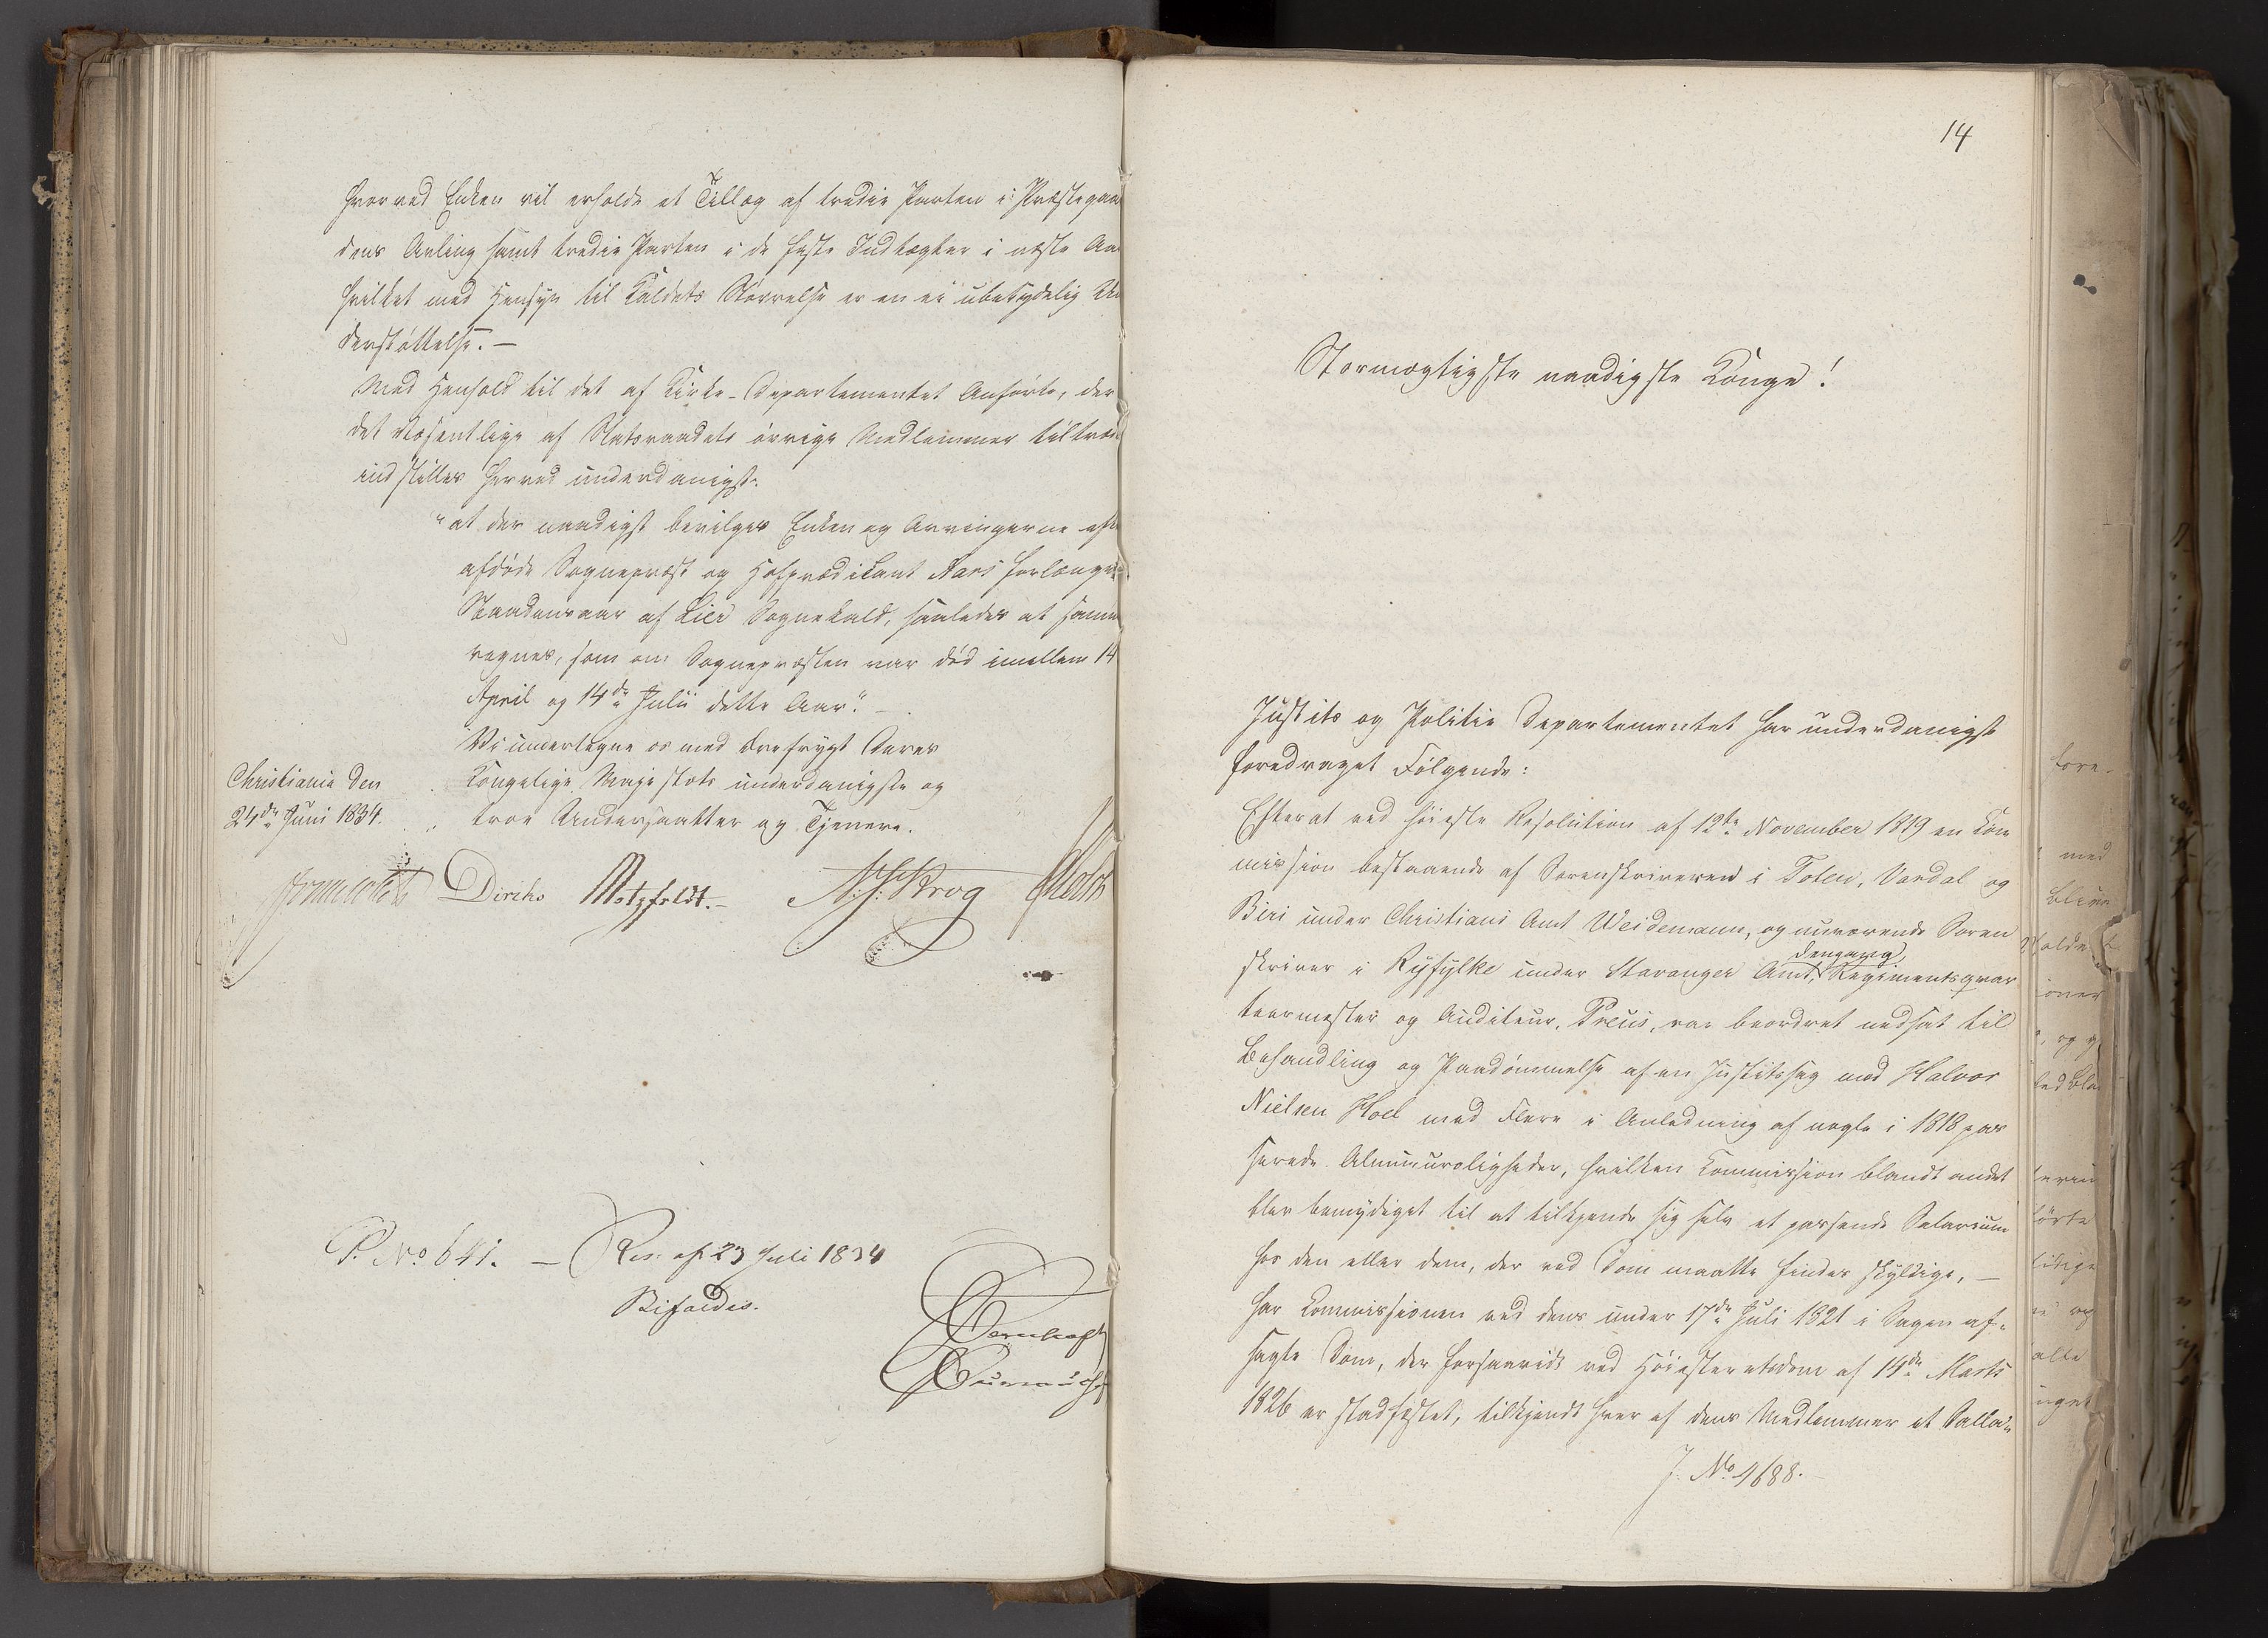 hvorved Enken vil erholde et Tillæg af tredie Parten i Præstegaar
dens Avling samt tredie Parten i de faste Indtægter i næste Aar
hvilket med Hensyn til Kaldets Størrelse er en ei ubetydelig Un
derstøttelse. —
Med Henhold til det af Kirke-Departementet Anførte, der
det væsentlige af Statsraadets øvrige Medlemmer tiltræd
indstilles herved underdanigst:
"at der naadigst bevilges Enken og Arvingerne efter
afdøde Sognepræst og Hofprædicant Aars forlænget
Naadensaar af Lier Sognekald, saaledes at samme
regnes, som om Sognepræsten var død imellem 14
April og 14de Julii dette Aar." —
Vi undertegne os med Ærefrygt Deres
Kongelige Majestæts underdanigste og
troe Undersaatter og Tjenere.
Christiania den
24de Juni 1834.
Diriks Motzfeldt. — Krog Holst
P. No 641. — Res. af 23 Juli 1834
Bifaldes.
14
Stormægtigste naadigste Konge!
Justits og Politie Departementet har underdanigst
foredraget Følgende:
Efterat ved høieste Resolution af 12te November 1819 en Kom
mission bestaaende af Sorenskriveren i Toten, Vardal og
Biri under Christians Amt Weidemann, og nuværende Soren
skriver i Ryfylke under Stavanger Amt, dengang, Regimentsqvar
teermester og Auditeur, Preus, var beordret nedsat til
Behandling og Paadømmelse af en Justitssag mod Halvor
Nielsen Hoel med Flere i Anledning af nogle i 1818 pas
serede Almueuroligheder, hvilken Kommission blandt andet
blev bemyndiget til at tilkjende sig selv et passende Salarium
hos den eller dem, der ved Dom maatte findes skyldige, —
har Kommissionen ved dens under 17de Juli 1821 i Sagen af-
sagte Dom, der forsaavidt ved Høiesteretsdom af 14de Marts
1826 er stadfæstet, tilkjendt hver af dens Medlemmer et Salla-
J. No 4688.